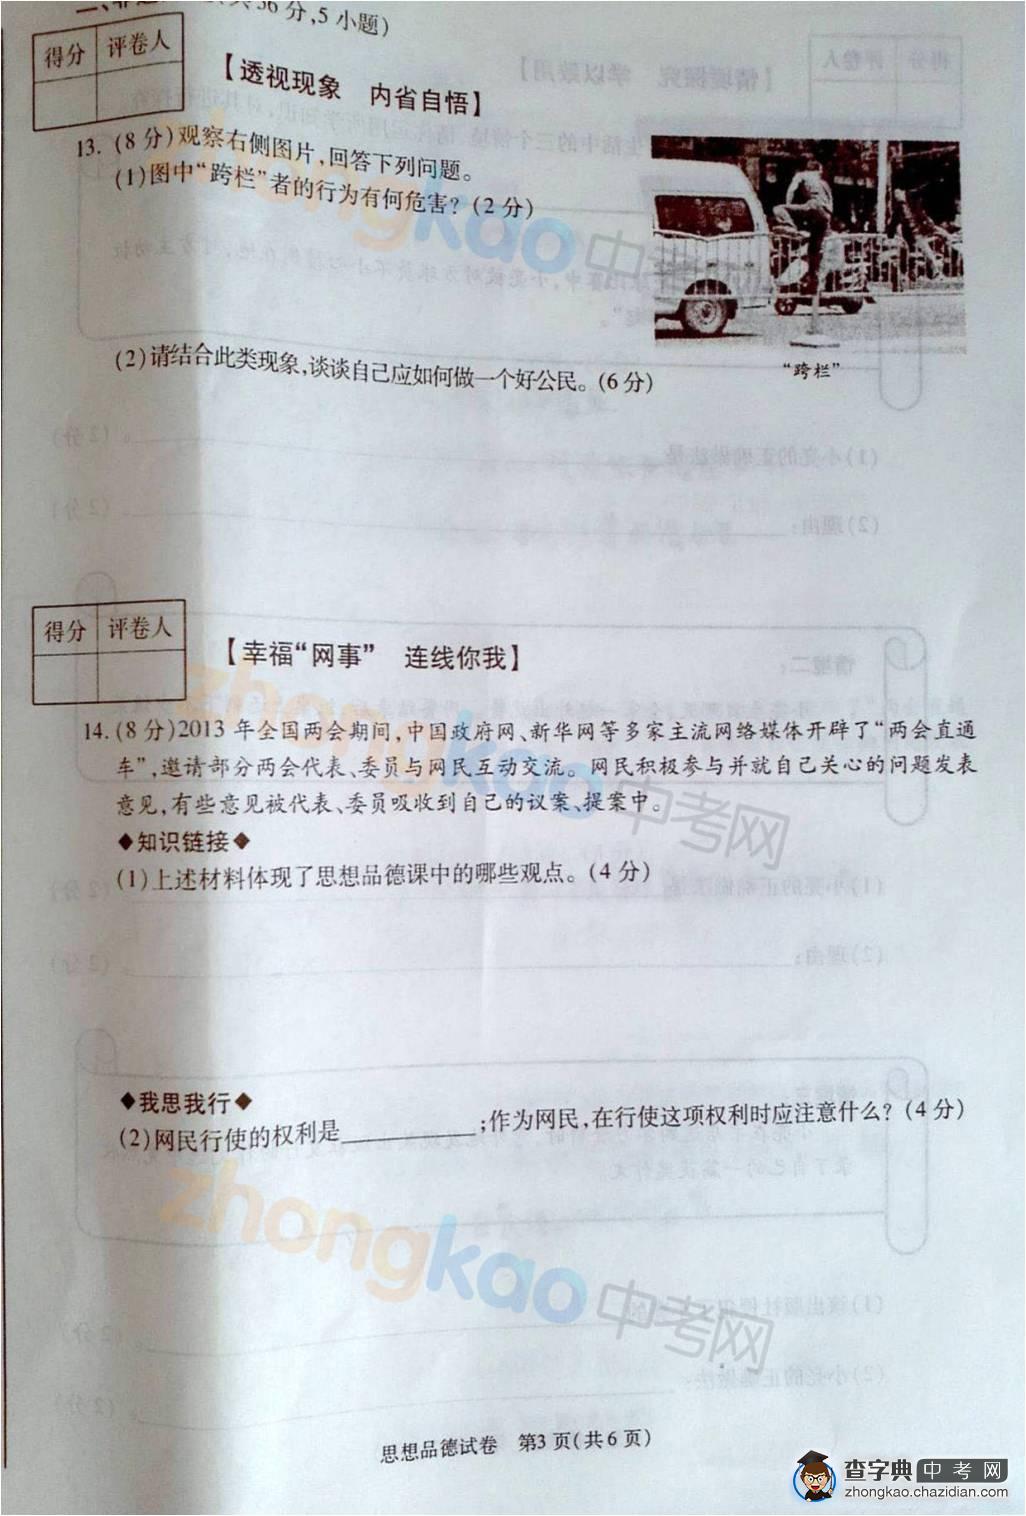 分,5小题)
得分 评卷人
【透视现象 内省自悟】
13.(8分)观察右侧图片,回答下列问题。
(1)图中“跨栏”者的行为有何危害?(2分)
“跨栏”
(2)请结合此类现象,谈谈自己应如何做一个好公民。(6分)
得分 评卷人
【幸福“网事” 连线你我】
14.(8分)2013年全国两会期间,中国政府网、新华网等多家主流网络媒体开辟了“两会直通
车”,邀请部分两会代表、委员与网民互动交流。网民积极参与并就自己关心的问题发表
意见,有些意见被代表、委员吸收到自己的议案、提案中。
◆知识链接◆
(1)上述材料体现了思想品德课中的哪些观点。(4分)
◆我思我行◆
(2)网民行使的权利是____________;作为网民,在行使这项权利时应注意什么?(4分)
思想品德试卷 第3页(共6页)
zhongkao中考网
zhongkao中考网
zhongkao中考网
查字典 中考网
zhongkao.chazidian.com